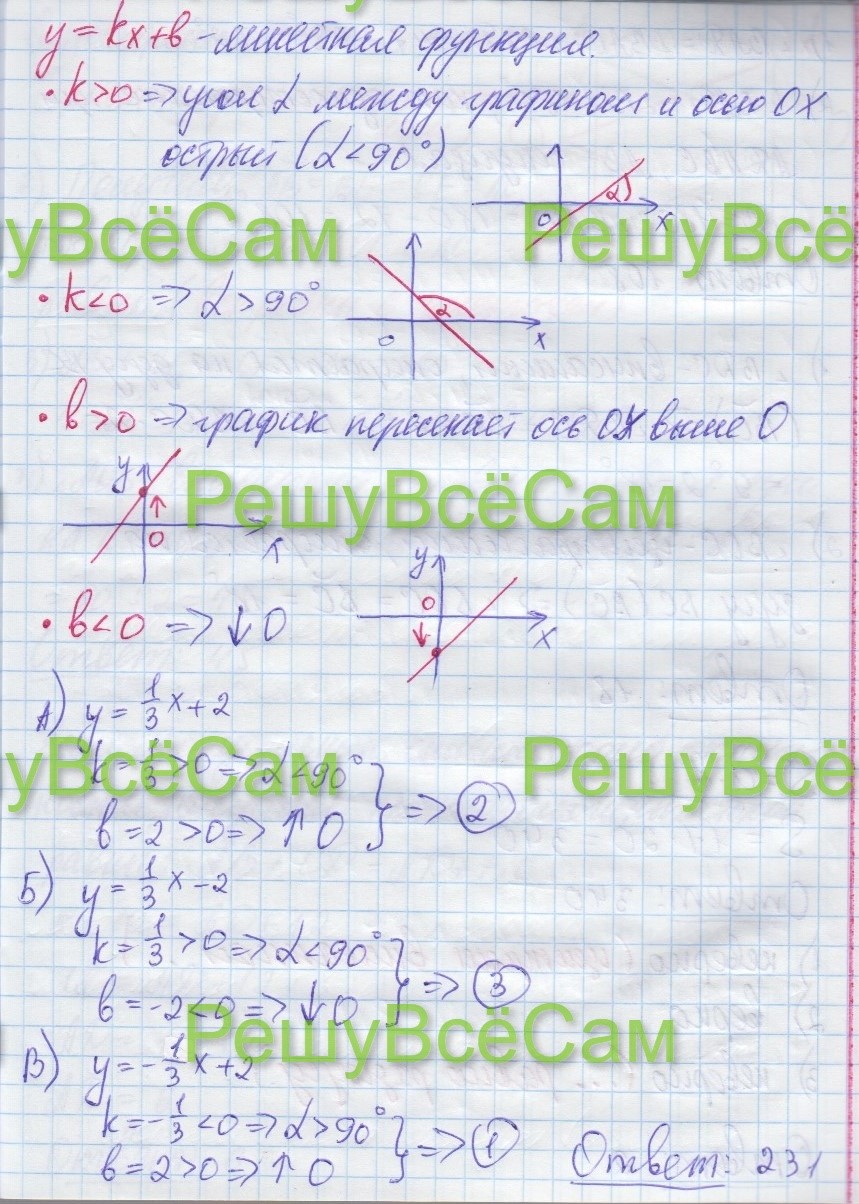 y = kx + b - линейная функция.
• k > 0 => угол α между графиком и осью OX
острый (α < 90°)
α
0 x
РешуВсёСам
уВсёСам РешуВсё
• k < 0 => α > 90°
α
0 x
• b > 0 => график пересекает ось OX выше 0
y
0 x
РешуВсёСам
y
0
x
• b < 0 => ↓ 0
А) y = 1/3 x + 2
уВсёСам РешуВсё
k = 1/3 > 0 => α < 90°
b = 2 > 0 => ↑ 0 } => 2
Б) y = 1/3 x - 2
k = 1/3 > 0 => α < 90°
b = -2 < 0 => ↓ 0 } => 3
РешуВсёСам
В) y = - 1/3 x + 2
k = - 1/3 < 0 => α > 90°
b = 2 > 0 => ↑ 0 } => 1
Ответ: 231